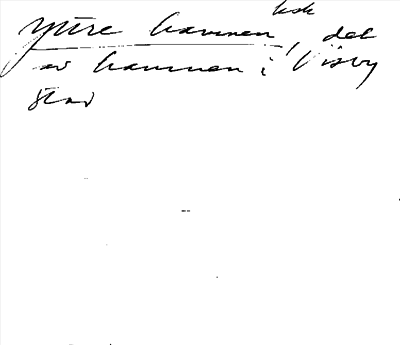 Yttre hamnen, del
av hamnen i Visby
stad